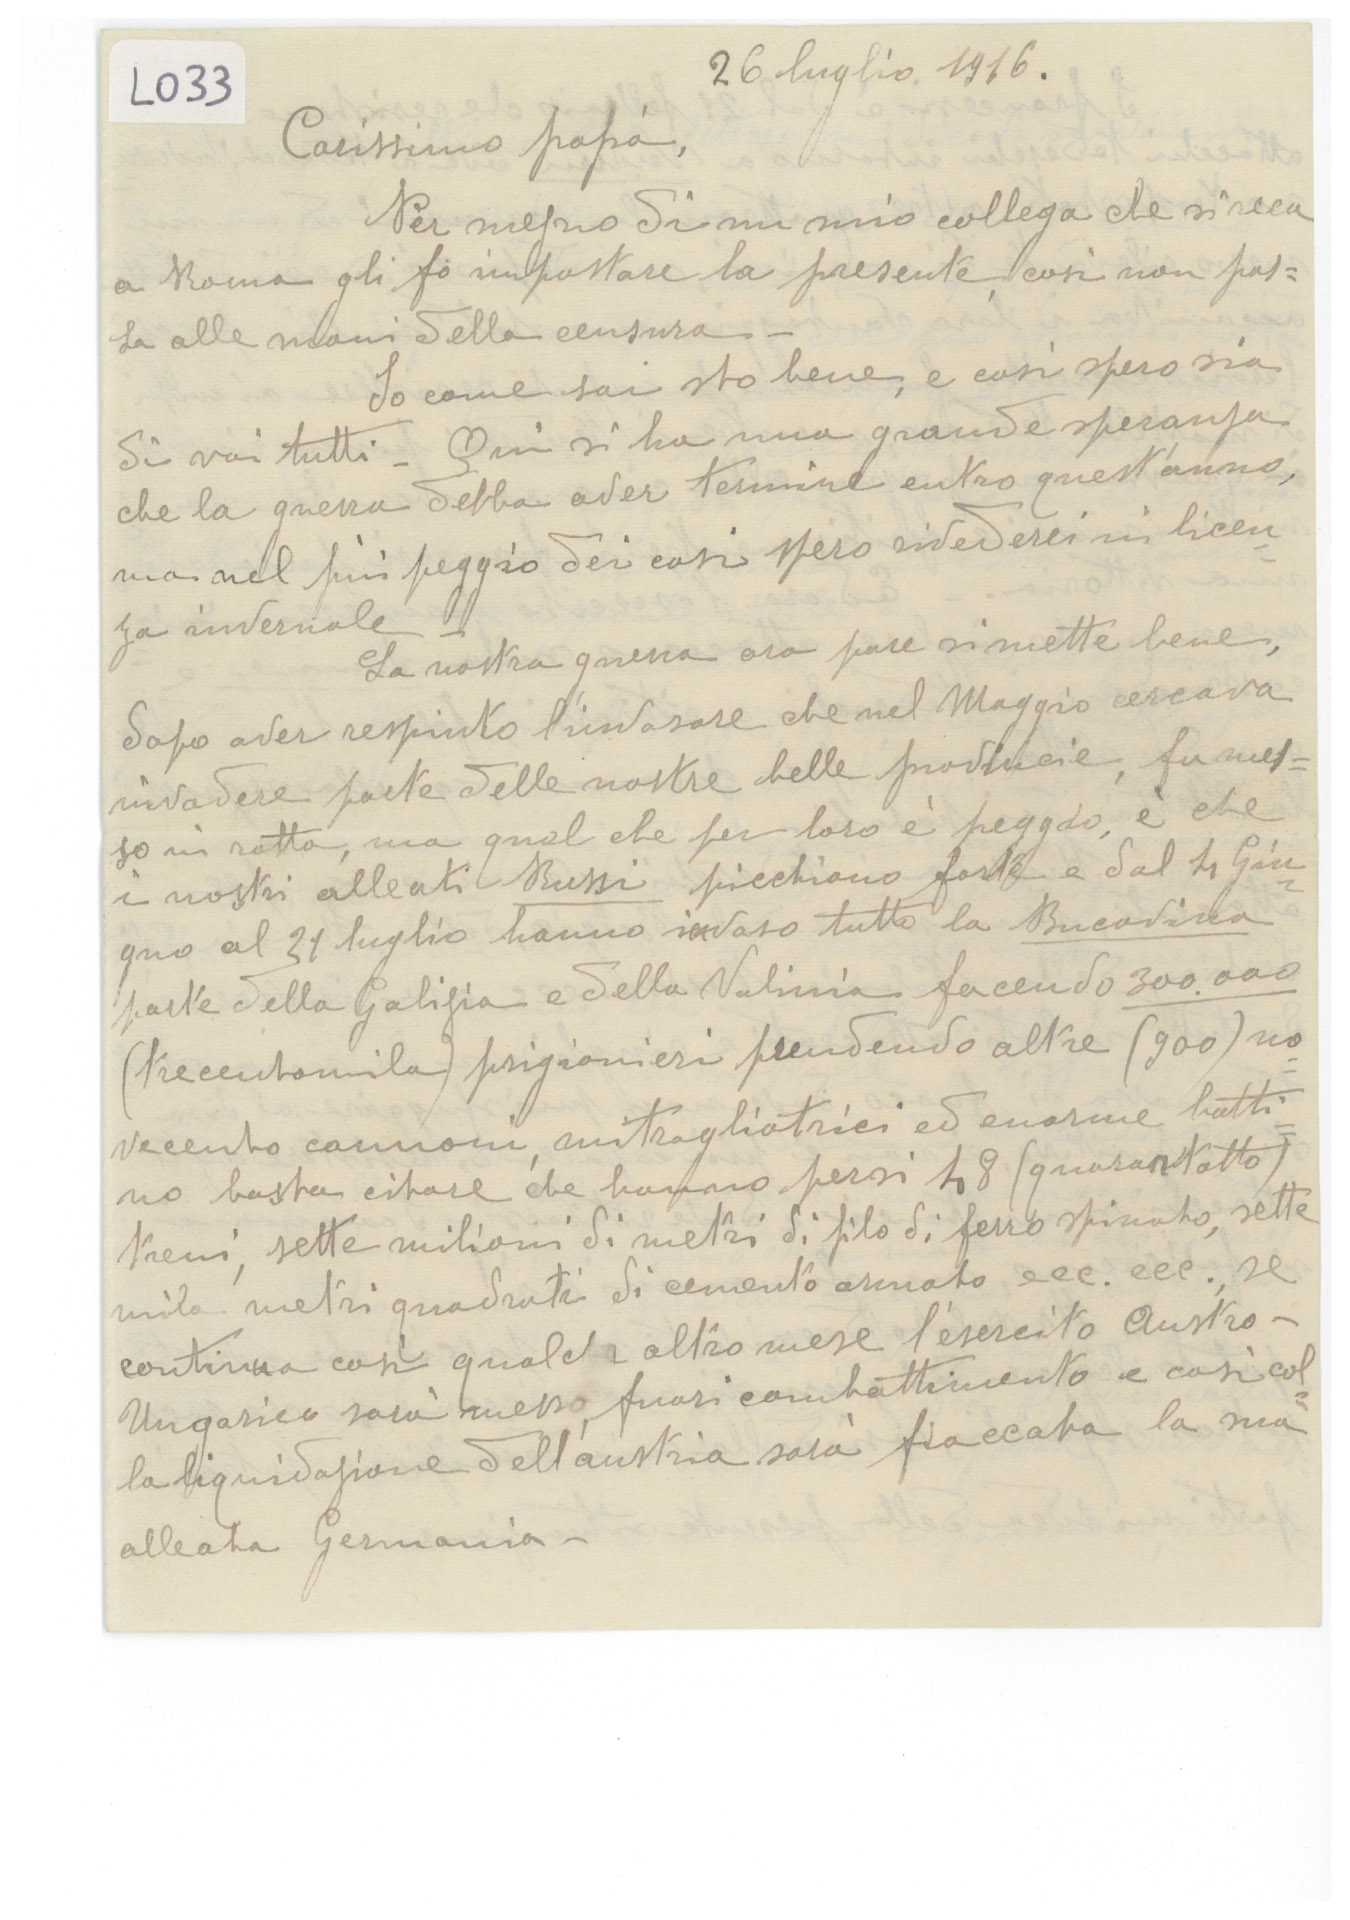 L033
26 luglio 1916.
Carissimo papà,
Per mezzo di un mio collega che si reca
a Roma gli fo impostare la presente, così non pas=
sa alle mani della censura –
Io come sai sto bene, e così spero sia
di voi tutti – Qui si ha una grande speranza
che la guerra debba aver termine entro quest'anno,
ma nel più peggio dei casi spero rivederci in licen=
za invernale –
La nostra guerra ora pare si mette bene,
dopo aver respinto l'invasore che nel Maggio cercava
invadere parte delle nostre belle provincie, fu mes=
so in rotta, ma quel che per loro è peggio, è che
i nostri alleati Russi picchiano forte e dal 4 Giu=
gno al 21 luglio hanno invaso tutto la Bucovina
parte della Galizia e della Volinia facendo 300.000
(trecentomila) prigionieri prendendo altre (900) no=
vecento cannoni, mitragliatrici ed enorme botti=
no basta citare che hanno persi 48 (quarantotto)
treni, sette milioni di metri di filo di ferro spinato, sette
mila metri quadrati di cemento armato ecc. ecc., se
continua così qualche altro mese l'esercito Austro–
Ungarico sarà messo fuori combattimento e così col=
la liquidazione dell'austria sarà fiaccata la sua
alleata Germania –